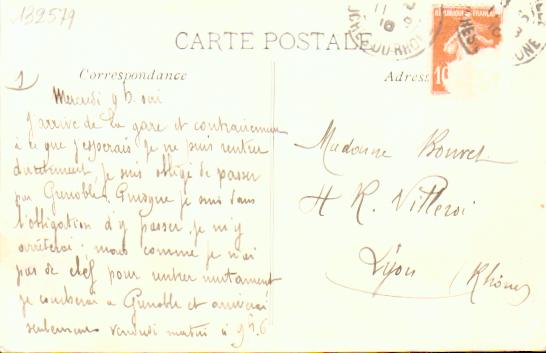 132579
CARTE POSTALE
Correspondance
Adress
RÉPUBLIQUE FRANÇAISE
10
1
Mercredi 9 h.
J'arrive de la gare et contrairement
à ce que j'espérais je ne puis rentrer
directement, je suis obligé de passer
par Grenoble. Puisque je suis dans
l'obligation d'y passer je m'y
arrêterai mais comme je n'ai
pas de clef pour rentrer nuitament
je coucherai à Grenoble et arriverai
seulement vendredi matin à 9h.6
Madame Bouvet
H R. Villeroi
Lyon
(Rhône)